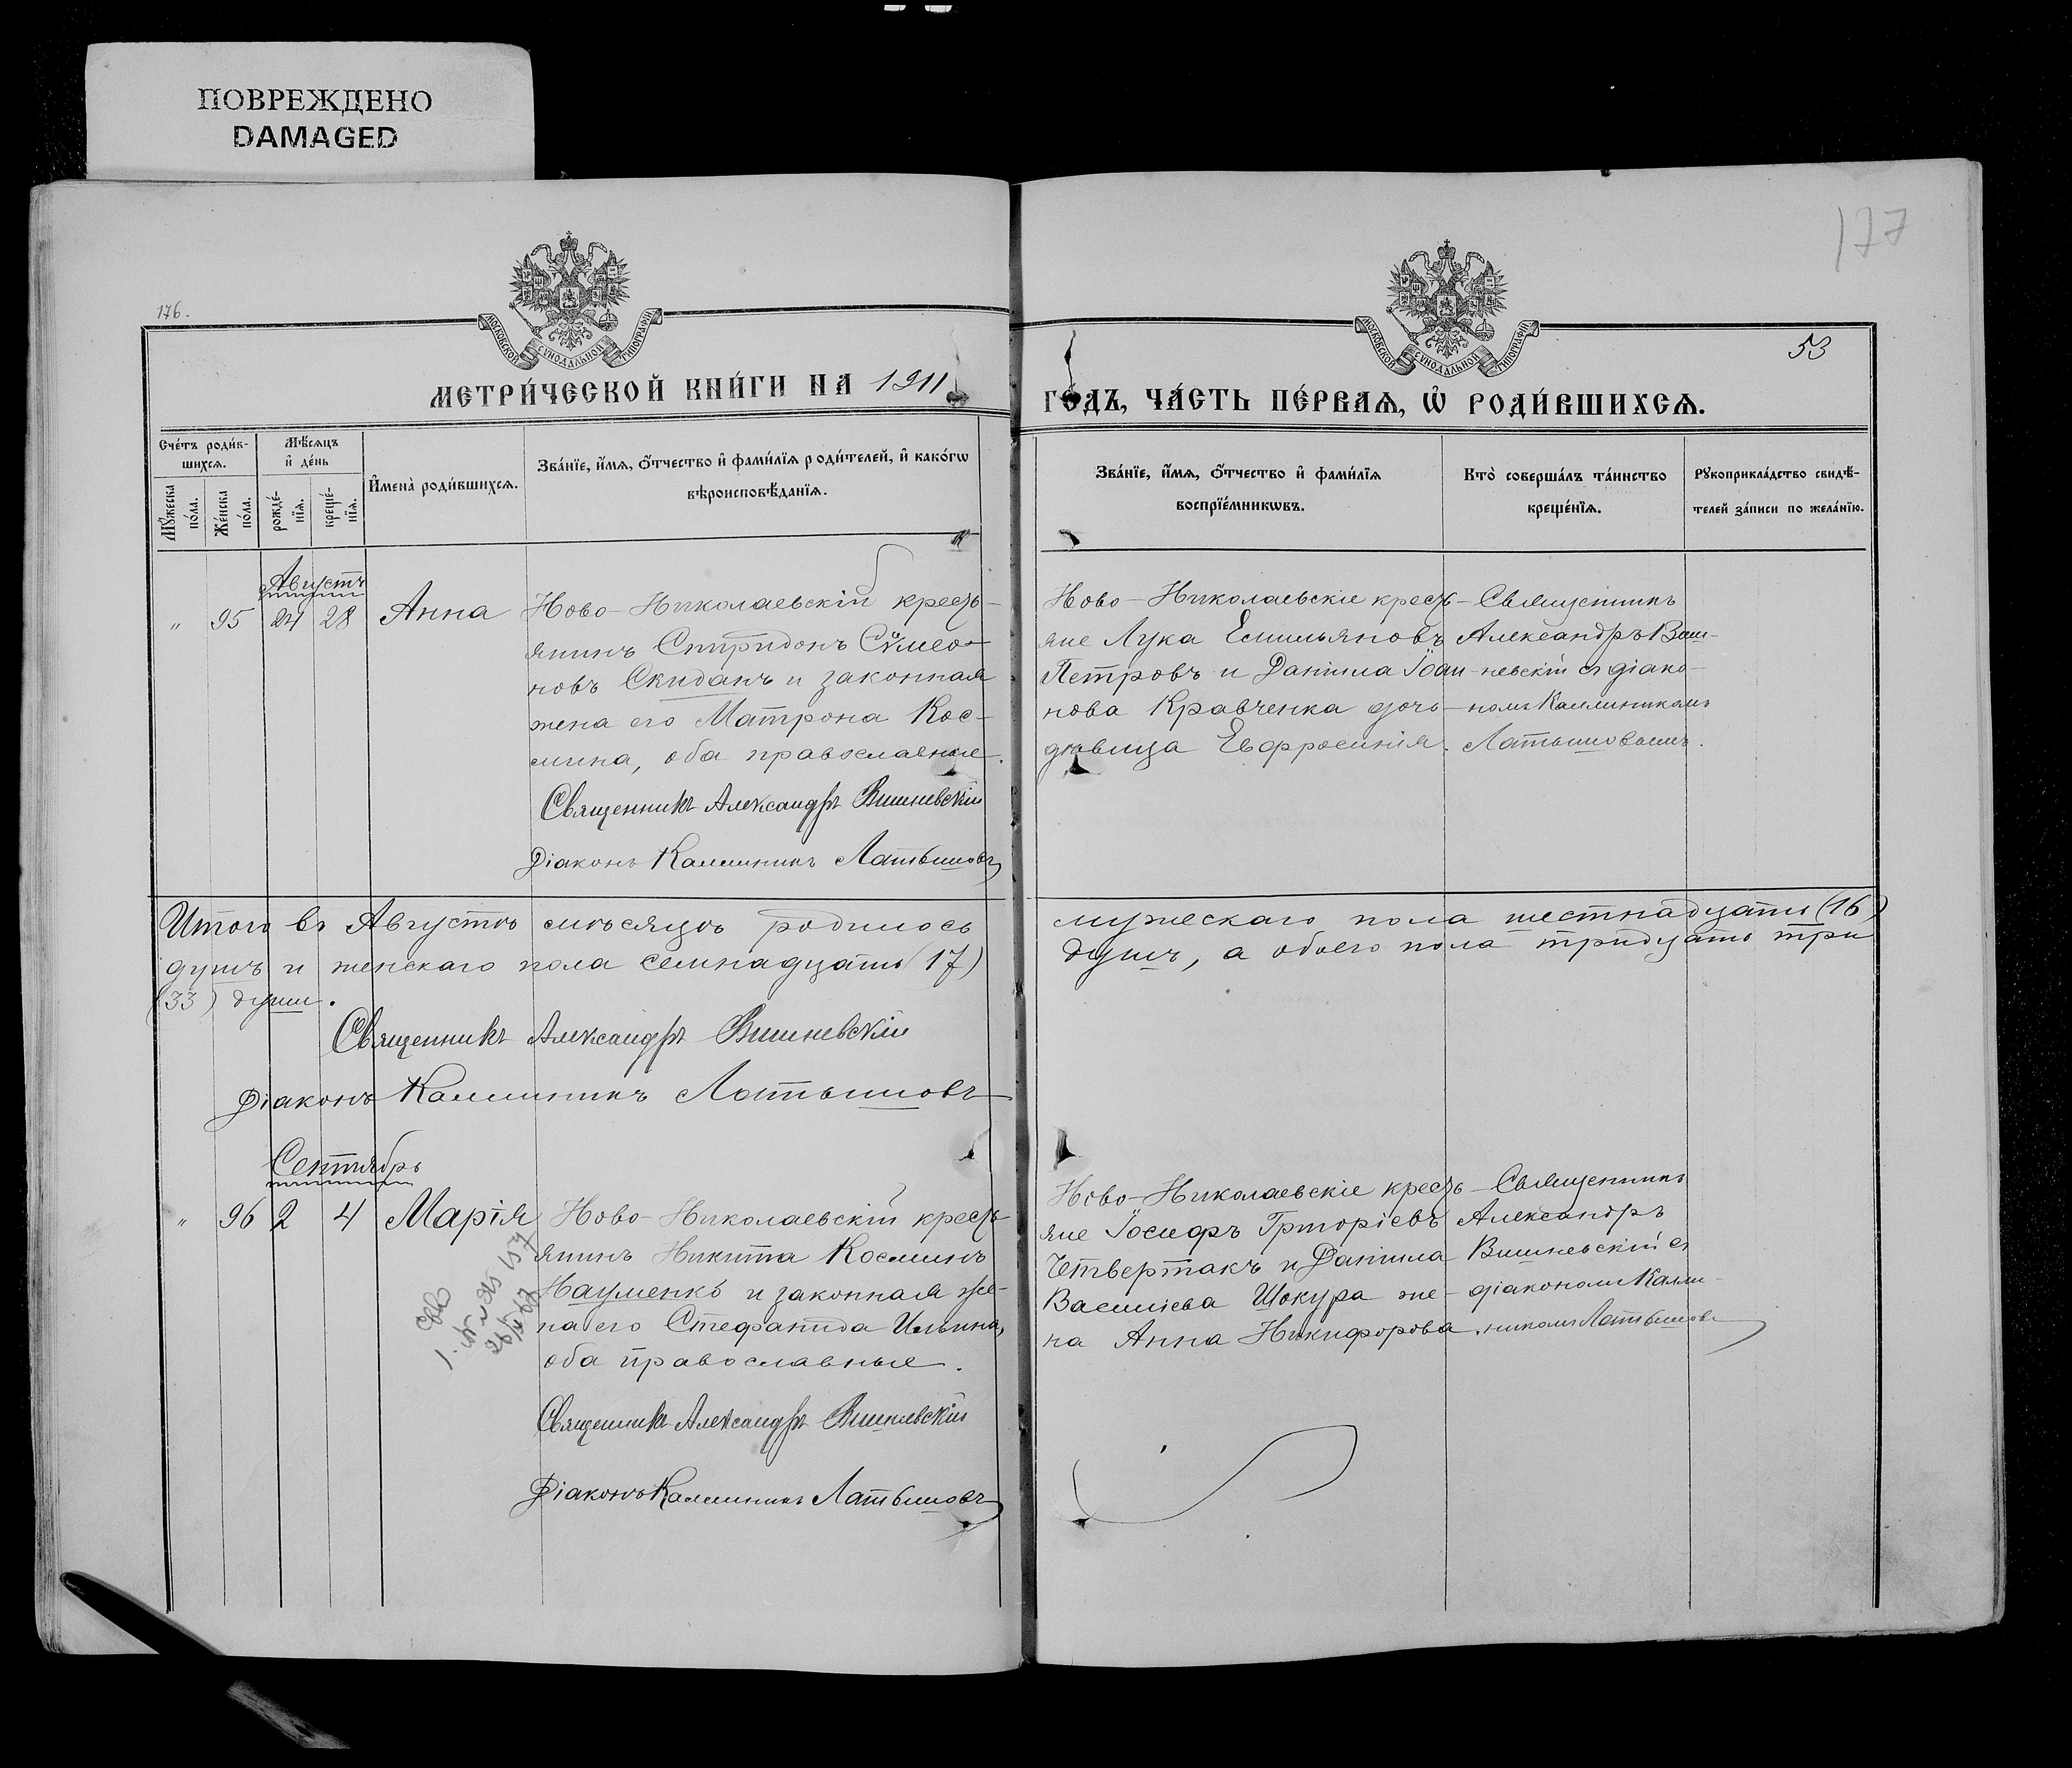 ПОВРЕЖДЕНО
DAMAGED
176.
177
53
МОСКОВСКОЙ СѴНОДАЛЬНОЙ ТИПОГРАФІИ
МОСКОВСКОЙ СѴНОДАЛЬНОЙ ТИПОГРАФІИ
МЕТРИ́ЧЕСКОЙ КНИ́ГИ НА 1911
ГО́ДЪ, ЧА́СТЬ ПЕ́РВАѦ, Ѡ҆ РОДИ́ВШИХСѦ.
Сче́тъ роди́в-
шихсѧ.
Мѣ́сѧцъ
и҆ де́нь
Мꙋ́жеска
по́ла.
Же́нска
по́ла.
рожде́-
нїѧ.
креще́-
нїѧ.
И҆мена̀ роди́вшихсѧ.
Зва́нїе, и҆́мѧ, ѻ҆́тчество и҆ фами́лїѧ роди́телей, и҆ како́гѡ
вѣроисповѣ́данїѧ.
Зва́нїе, и҆́мѧ, ѻ҆́тчество и҆ фами́лїѧ
воспрїе́мникѡвъ.
Кто̀ соверша́лъ та́инство
креще́нїѧ.
Рꙋкоприкла́дство свидѣ́-
телей за́писи по жела́нїю.
Августъ
„ 95 24 28 Анна
Ново-Николаевскій кресть-
янинъ Спиридонъ Сѵмео-
новъ Скиданъ и законная
жена его Матрона Кос-
мина, оба православные.
Священникъ Александръ Вишневскій
Діаконъ Каллиникъ Латышовъ
Ново-Николаевскіе кресть-
яне Лука Емильяновъ
Петровъ и Даніила Іоан-
нова Кравченка дочь
дѣвица Евфросинія.
Священникъ
Александръ Виш-
невскій съ діако-
номъ Каллиникомъ
Латышовымъ.
Итого въ Августѣ мѣсяцѣ родилось
мужескаго пола шестнадцать (16)
душъ и женскаго пола семнадцать (17)
душъ, а обоего пола тридцать три
(33) души.
Священникъ Александръ Вишневскій
Діаконъ Каллиникъ Латышовъ
Сентябрь
„ 96 2 4 Марія
Ново-Николаевскій кресть-
янинъ Никита Косминъ
Науменко и законная же-
на его Стефанида Ильина,
оба православные.
Священникъ Александръ Вишневскій
Діаконъ Каллиникъ Латышовъ
Ново-Николаевскіе кресть-
яне Іосифъ Григоріевъ
Четвертакъ и Даніила
Василіева Шокура же-
на Анна Никифорова.
Священникъ
Александръ
Вишневскій съ
діакономъ Калли-
никомъ Латышов.